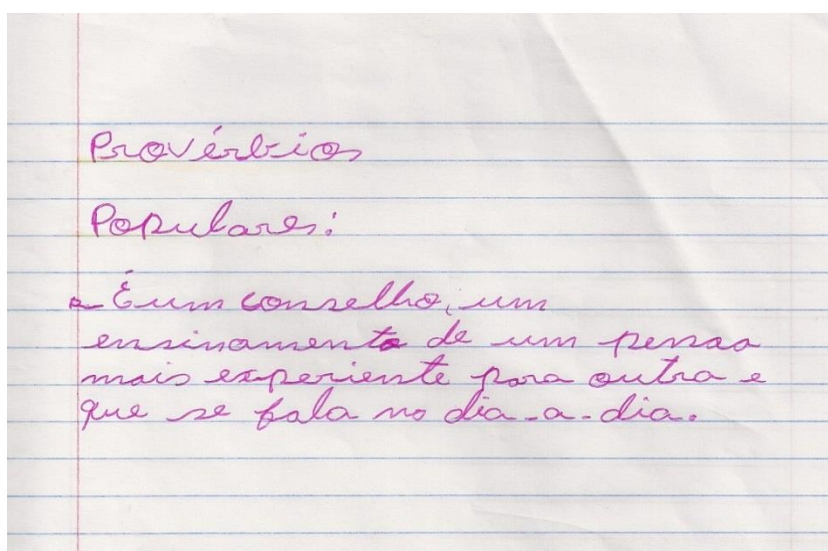 Provérbios
Populares:
- É um conselho, um
ensinamento de um pessoa
mais experiente para outra e
que se fala no dia-a-dia.